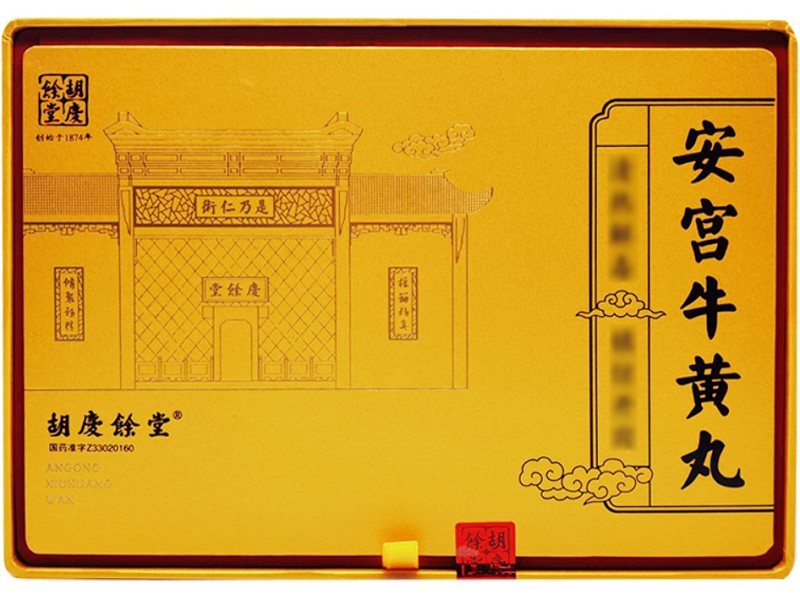 胡慶餘堂
创始于1874年
是乃仁術
慶餘堂
安宫牛黄丸
胡慶餘堂®
国药准字Z33020160
ANGONG
NIUHUANG
WAN
胡慶餘堂